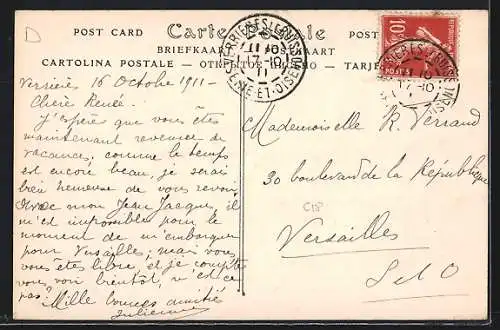 D
POST CARD Carte Postale POST
BRIEFKAART
CARTOLINA POSTALE - TARJE
VERRIÈRES-LE-BUISSON
11 10
17-10
11
SEINE-ET-OISE
10
POSTES
17-10
Verrières 16 Octobre 1911 -
Chère Renée.
J'espère que vous êtes
maintenant revenue de
vacances, comme le temps
est encore beau, je serais
bien heureuse de vous revoir,
Avec mon Jean Jacques, il
m'est impossible pour le
moment de m'embarquer
pour Versailles, mais vous
vous êtes libre, et je compte
vous voir bientôt, n'est ce
pas? Mille bonnes amitiés
Julienne
Mademoiselle R. Verrand
30 boulevard de la République
C18
Versailles
S et O